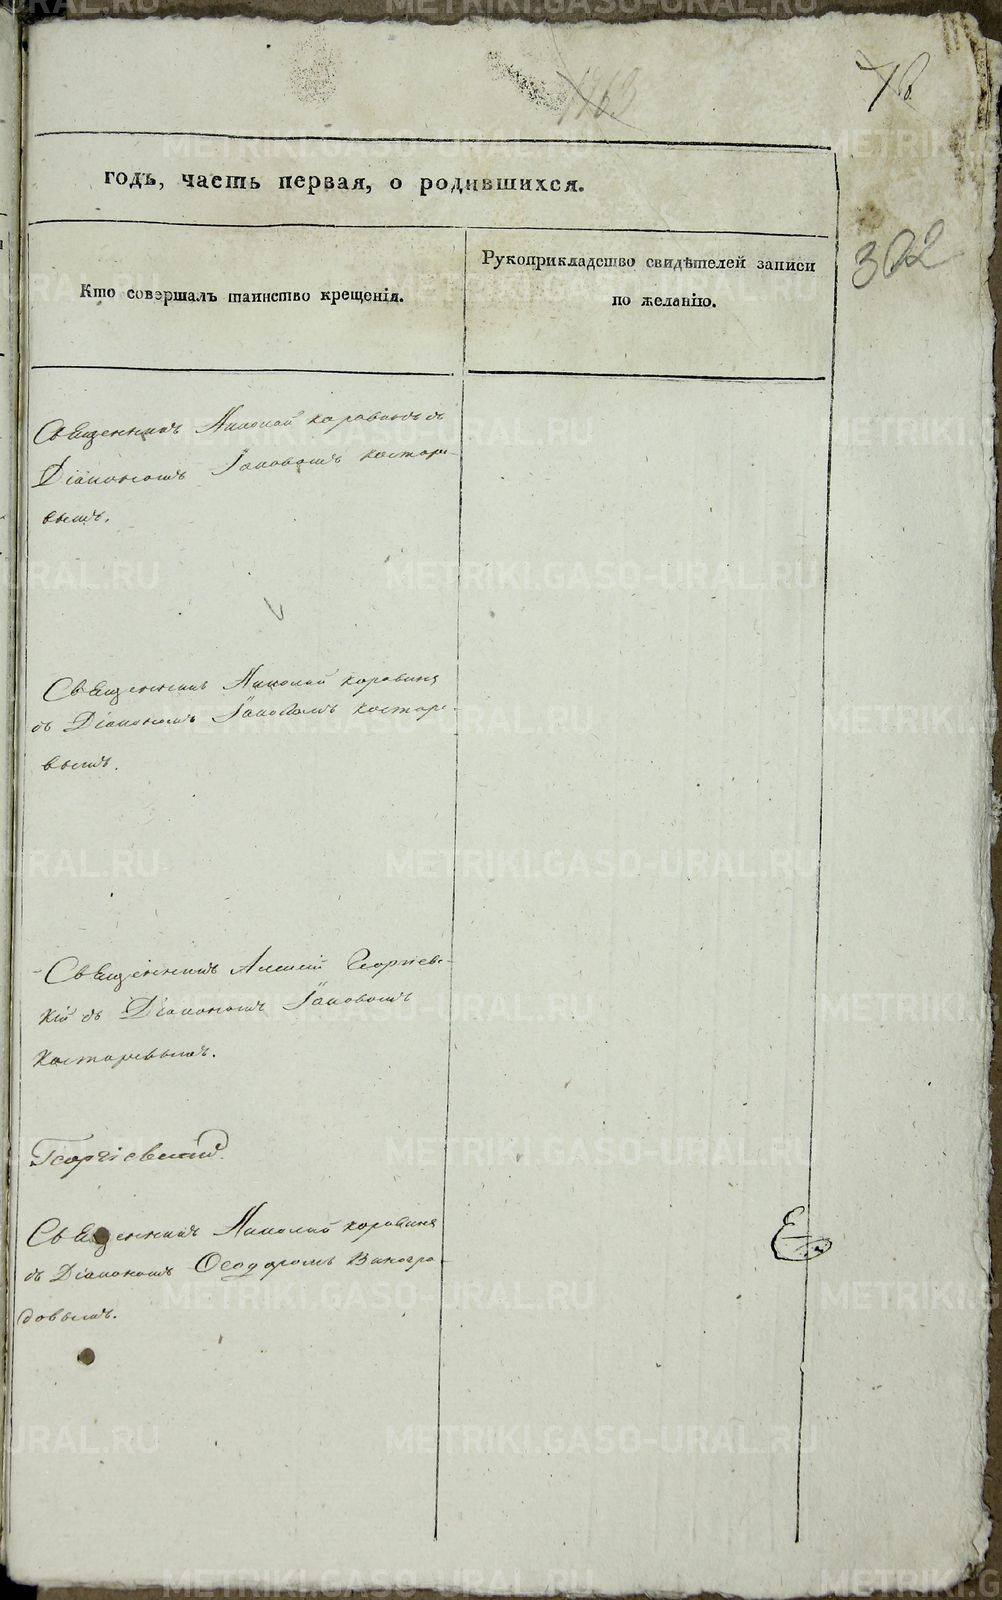 годъ, часть первая, о родившихся.
302
Кто совершалъ таинство крещенія.
Рукоприкладство свидѣтелей записи
по желанію.
Священникъ Николай Коровинъ съ
Діакономъ Іаковомъ Костаре-
вымъ.
Священникъ Николай Коровинъ
съ Діакономъ Іаковомъ Костаре-
вымъ.
Священникъ Алексій Георгіевс-
кій съ Діакономъ Іаковомъ
Костаревымъ.
Георгіевскій.
Священникъ Николай Коровинъ
съ Діакономъ Ѳеодоромъ Виногра-
довымъ.
METRIKI.GASO-URAL.RU